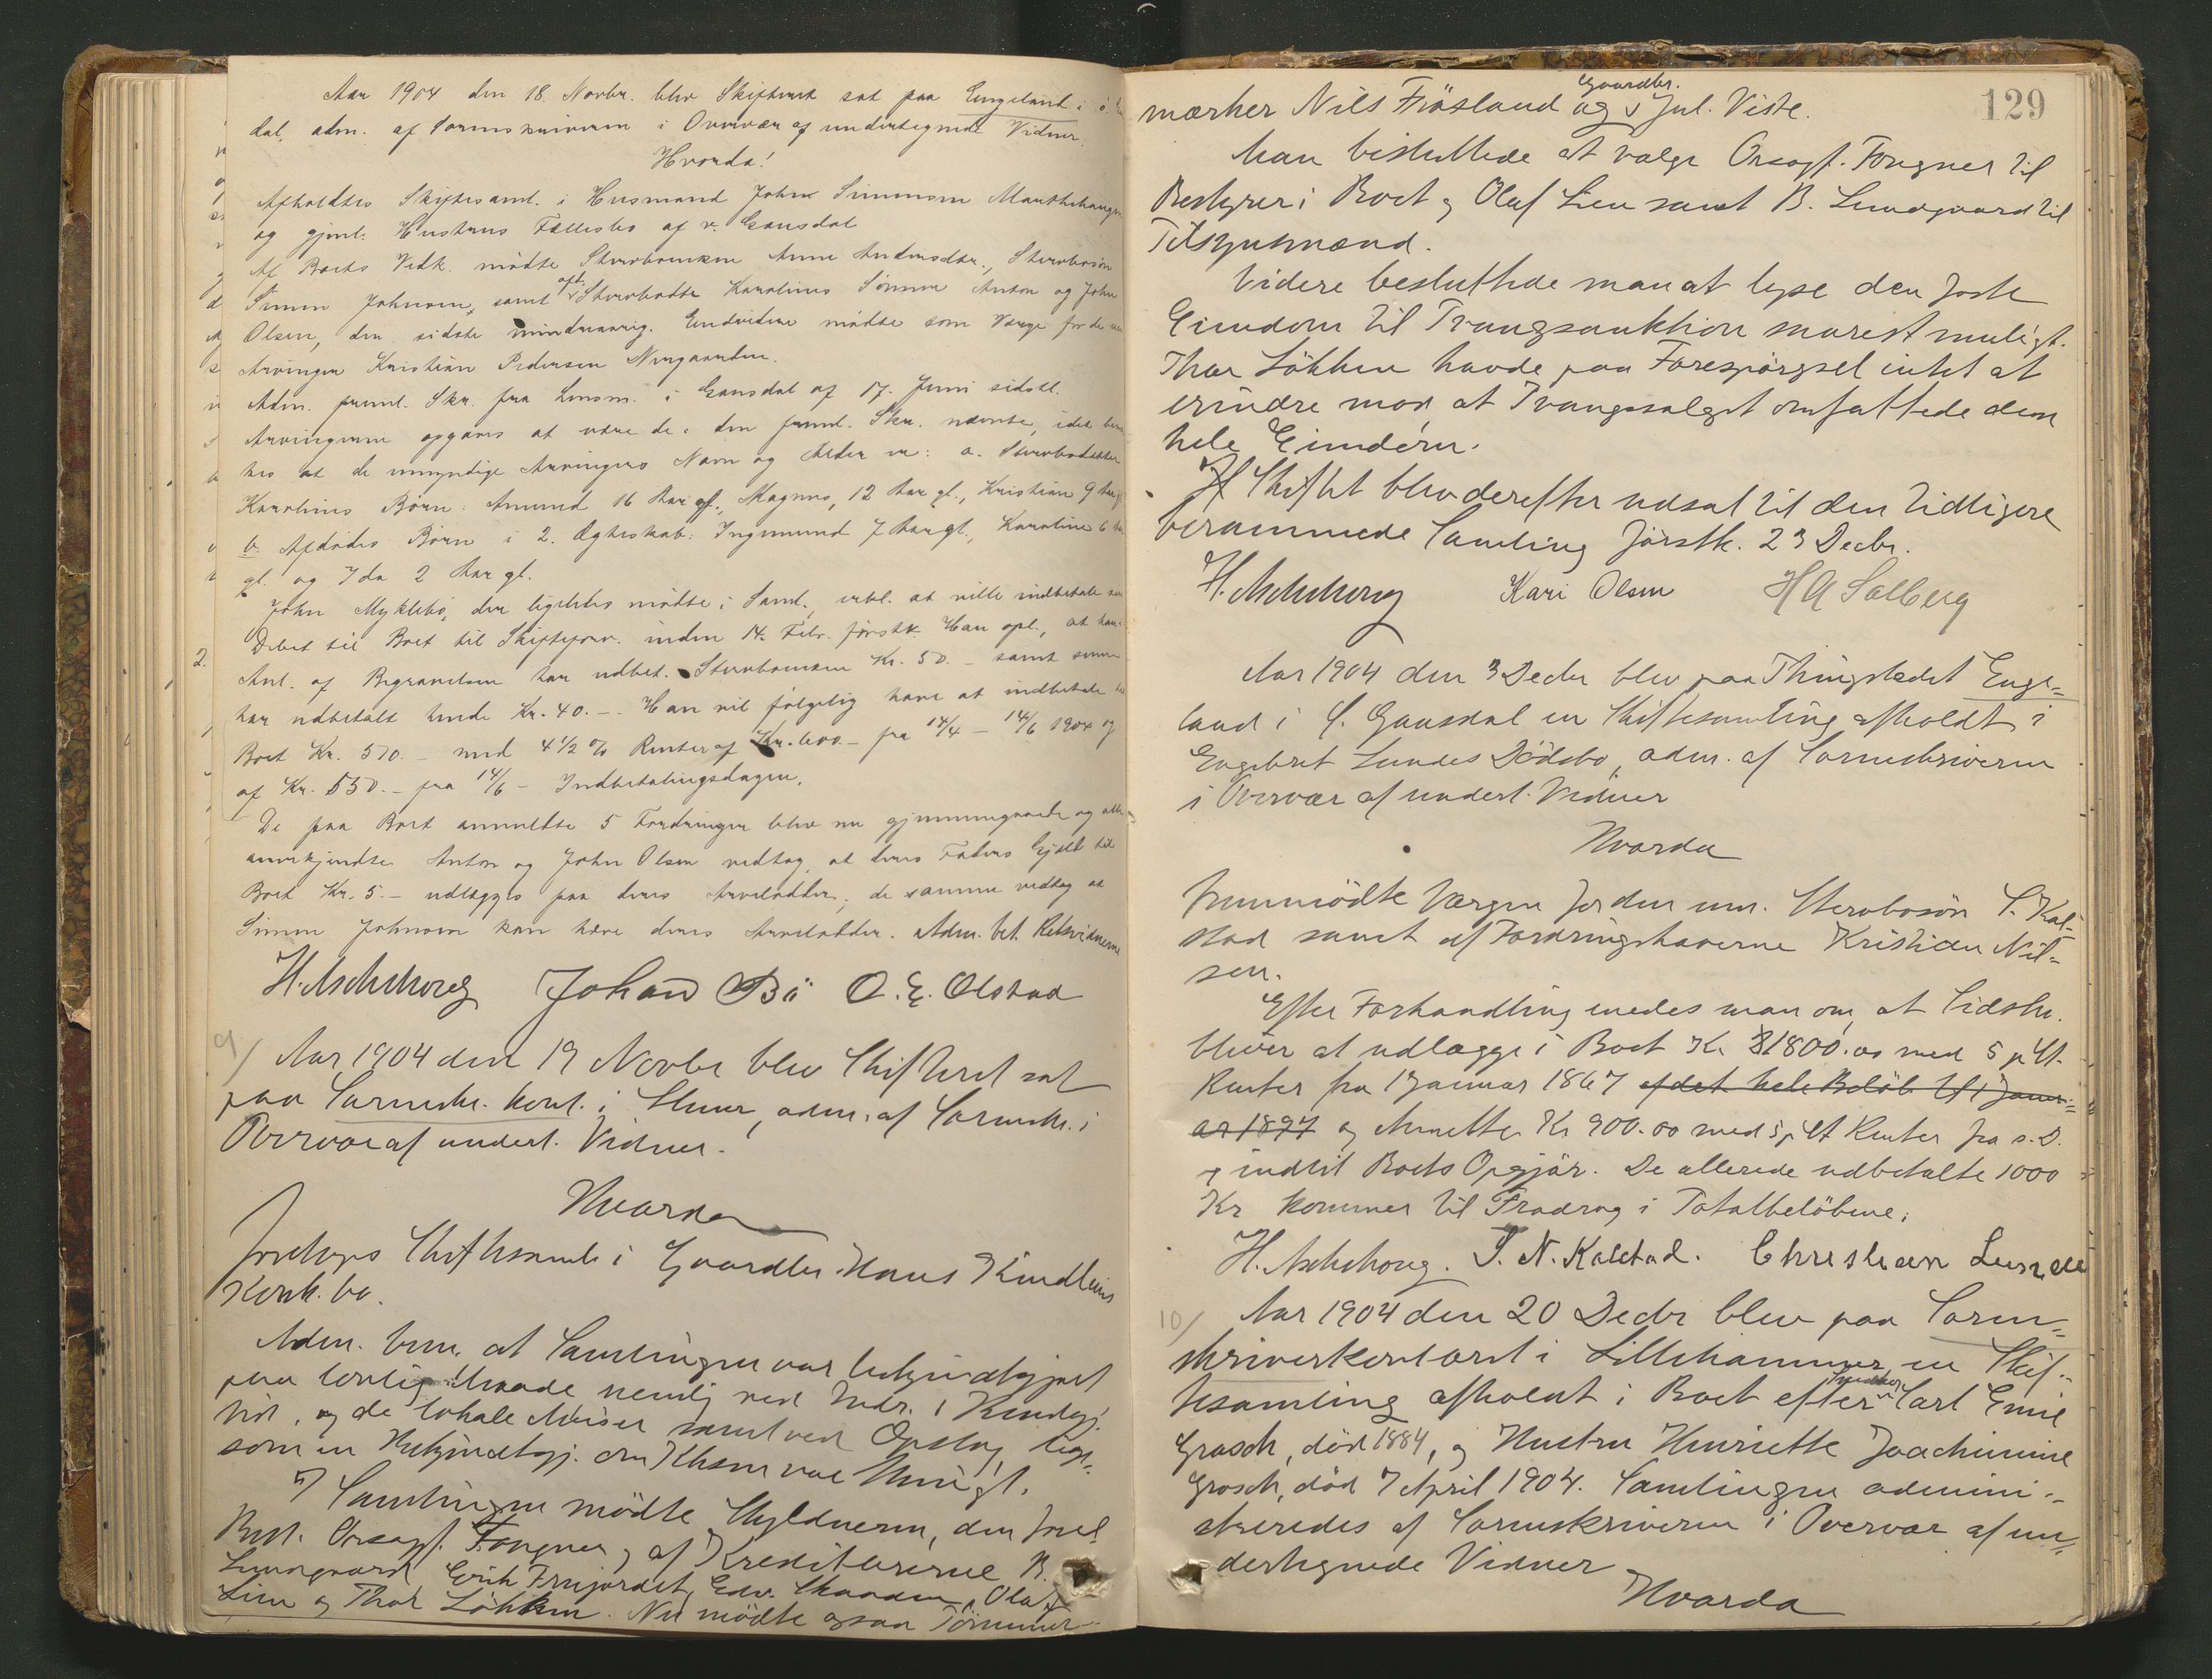 Aar 1904 den 18. Novbr. blev Skifteret sat paa Engeland i Ö. Gaus
dal, adm. af Sorenskriveren i Overvær af undertegnede Vidner.
Hvorda!
Afholdtes Skiftesaml. i Husmand John Simensen
og gjenl. Hustrus Fællesbo af v. Gausdal
Af Boets Vedk. mödte Stervboenken Anne Andersdtr., Stervbosön
Simen Johnsen, samt afd. Stervbodtr Karolines Sönner Anton og John
Olsen, den sidste mindreaarig. Endvidere mödte som Værge for de um
Arvinger Kristian Pedersen Nergaarden.
Adm. freml. Skr. fra Lensm. i Gausdal af 17. Juni sidstl.
Arvingerne opgaves at være de i den freml. Skr. nævnte, idet bem
kes at de umyndige Arvingers Navn og Alder er: a. Stervbodatter
Karolines Börn: Amund 16 Aar gl., Magnus, 12 Aar gl., Kristian 9 Aar gl
b. Afdödes Börn i 2. Ægteskab: Ingemund 7 Aar gl., Karoline 6 Aar
gl. og Ida 2 Aar gl.
John Myklebö, der ligeledes mödte i Saml., erkl. at ville indbetale sin
Debet til Boet til Skifteforv. inden 14. Febr. förstk. Han opl., at han i
2. Anl. af Begravelsen har udbet. Stervboenken Kr. 50.- samt senere
har udbetalt hende Kr. 40.-. Han vil fölgelig have at indbetale til
Boet Kr. 510.- med 4 1/2 % Renter af Kr. 600.- fra 14/4 - 14/6 1904 og
af Kr. 550.- fra 14/6 - Indbetalingsdagen.
De paa Boet anmeldte 5 Fordringer blev nu gjennemgaaede og alle
anerkjendte. Anton og John Olsen vedtog, at deres Faders Gjæld til
Boet Kr. 5.- udlægges paa deres Arvelodder, de samme vedtog at
Simen Johnsen kan hæve deres Arvelodder. Adm. bet. Retsvidnerne
H. Aschehoug Johan Bö O. E. Olstad
9/ Aar 1904 den 19 Novbr blev Skifteret sat
paa Sorenskr. kont. i Skurva, adm. af Sorenskr. i
Overvær af undert. Vidner.
Hvorda
foretoges Skiftesaml. i Gaardbr. Hans Kindlies
Konk. bo.
Adm. bem. at Samlingen var bekjendtgjort
paa lovlig Maade nemlig ved Indr. i Kundgj.
tid. og de lokale Aviser samt ved Opslag, lige-
som en Bekjendtgj. om Konkursen var
I Samlingen mödte Skyldneren, den forel.
Best. Orsagf. Fougner, af Kreditorerne B.
Lundgaard, Erik Frejordet, Edv. Skaaden, Olaf
Lien og Thor Lökken. Nu mödte ogsaa Tömmer-
129
mærker Nils Fröisland og Gaardbr. Jul. Viste.
Man besluttede at vælge Orsagf. Fougner til
Bestyrer i Boet og Olaf Lien samt B. Lundgaard til
Tilsynsmænd.
Videre besluttede man at lyse den faste
Eiendom til Tvangsauktion snarest muligt.
Thor Lökken havde paa Forespörgsel intet at
erindre mod, at Tvangssalget omfattede den
hele Eiendom.
Skiftet blev derefter udsat til den tidligere
berammede Samling förstk. 23 Decbr.
H. Aschehoug Kari Olsen H A Solberg
Aar 1904 den 3 Decbr blev paa Thingstedet Enge-
land i Ö. Gausdal en Skiftesamling afholdt i
Engebret Lundes Dödsbo, adm. af Sorenskriveren
i Overvær af undert. Vidner
Hvorda
fremmödte Værgen for den um. Stervbosön S. Kal-
stad samt af Fordringshaverne Kristian Nil-
sen.
Efter Forhandling enedes man om, at Sidstn.
bliver at udlægge i Boet Kr. 1800.00 med 5 pCt.
Renter fra 1 Januar 1867 af det hele Belöb til 1 Janu-
ar 1897 og Annette Kr 900.00 med 5 pCt Renter fra s. D.
og indtil Boets Opgjör. De allerede udbetalte 1000
Kr kommer til Fradrag i Totalbelöbene.
H. Aschehoug. S. N. Kalstad. Christian Lunde
10/ Aar 1904 den 20 Decbr blev paa Soren-
skriverkontoret i Lillehammer en Skif-
tesamling afholdt i Boet efter Carl Emil
Grosch, död 1884, og Hustru Henriette Joachimine
Grosch, död 7 April 1904. Samlingen admini-
streredes af Sorenskriveren i Overvær af un-
dertegnede Vidner
Hvorda